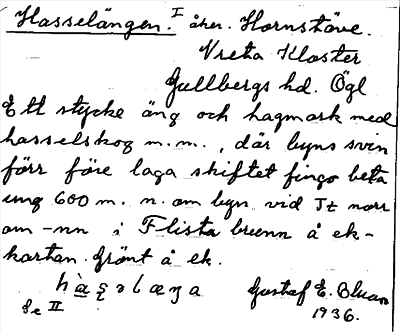 Hasselängen. I åker. Hornstöve.
Vreta Kloster
Gullbergs hd. Ögl
Ett stycke äng och hagmark med
hasselskog m.m., där byns svin
förr före laga skiftet fingo beta
ung 600 m. n. om byn vid Jz norr
om -nn i Flista brunn å ek-
kartan. Grönt å ek.
Gustaf E.
Se II 1936.